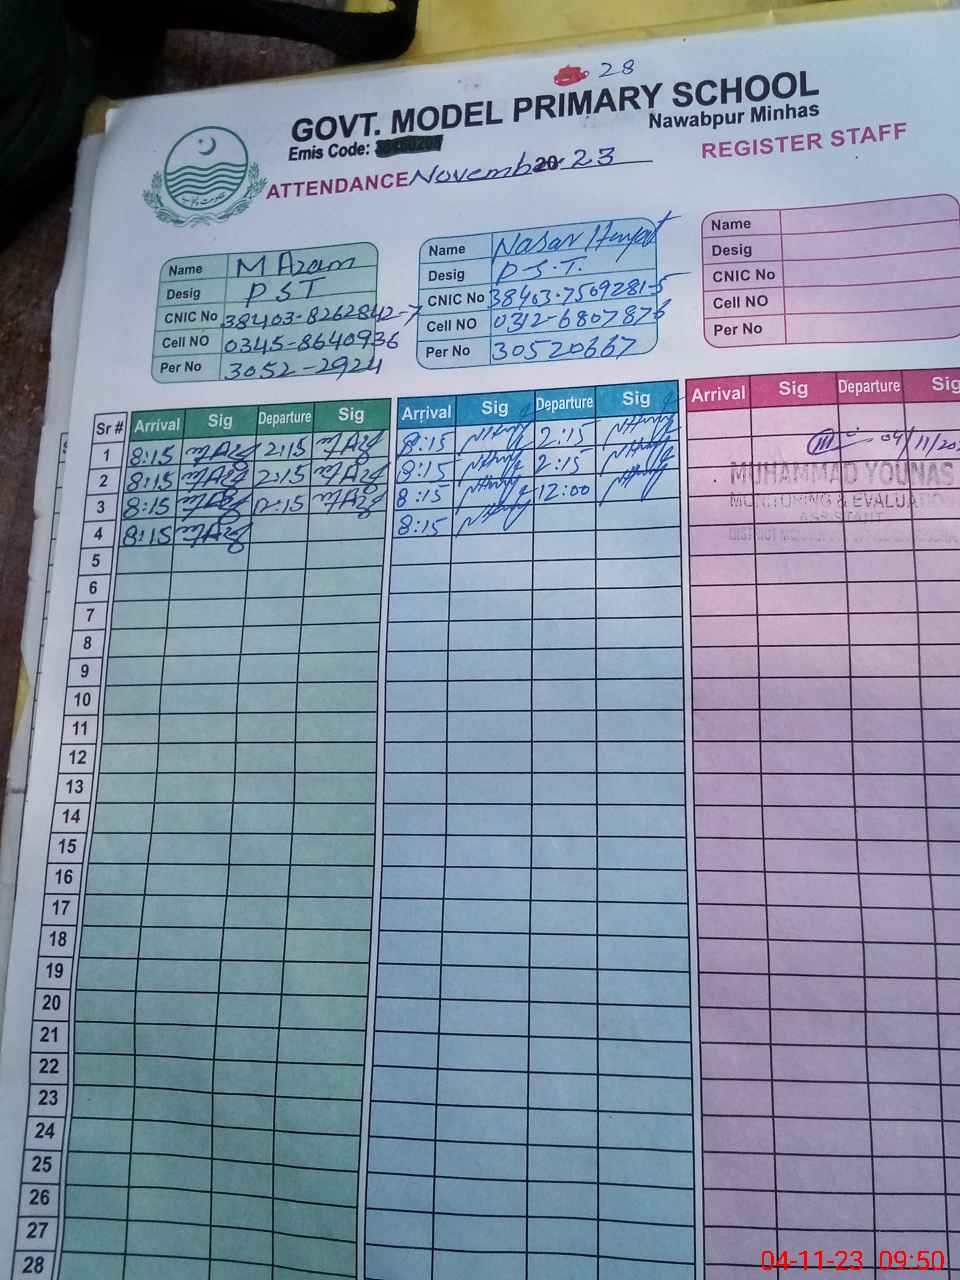 28
GOVT. MODEL PRIMARY SCHOOL
Nawabpur Minhas
Emis Code:
ATTENDANCE Novemb 20 23
REGISTER STAFF
Name M Azam
Desig PST
CNIC No 38403-8262842-7
Cell NO 0345-8640936
Per No 3052-2924
Name
Desig P.S.T.
CNIC No 38403-7509281-5
Cell NO 0312-6807876
Per No 30520667
Name
Desig
CNIC No
Cell NO
Per No
Sr # Arrival Sig Departure Sig Arrival Sig Departure Sig Arrival Sig Departure Sig
1 8:15 2:15 8:15 2:15 04/11/20
2 8:15 2:15 8:15 2:15 MUHAMMAD YOUNAS
3 8:15 8:15 12:00 MONITORING & EVALUATIO
ASSISTANT
4 8:15 8:15
5
6
7
8
9
10
11
12
13
14
15
16
17
18
19
20
21
22
23
24
25
26
27
28
04-11-23 09:50